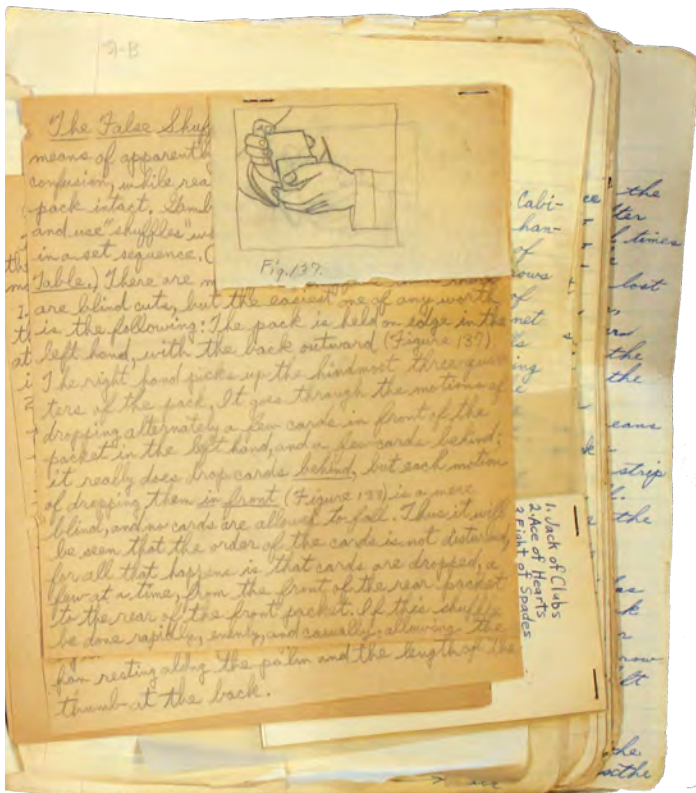 The False Shuf
means of apparently
confusion, while rea
pack intact. Gamb
and use "shuffles"
in a set sequence. (
Table.) There are
are blind cuts, but the easiest one of any worth
is the following: The pack is held on edge in the
left hand, with the back outward (Figure 137)
The right hand picks up the hindmost three-quar
ters of the pack. It goes through the motions of
dropping alternately a few cards in front of the
packet in the left hand, and a few cards behind;
it really does drop cards behind, but each motion
of dropping them in front (Figure 137) is a mere
blind, and no cards are allowed to fall. Thus it will
be seen that the order of the cards is not disturbed,
for all that happens is that cards are dropped, a
few at a time, from the front of the rear packet
to the rear of the front packet. If this shuffle
be done rapidly, evenly, and casually, allowing the
from resting along the palm and the length of the
thumb at the back.
Fig. 137.
1. Jack of Clubs
2. Ace of Hearts
3. Eight of Spades
Cabi-
han-
of
of
net
ing
the
times
lost
the
the
eans
strip
the
row
the